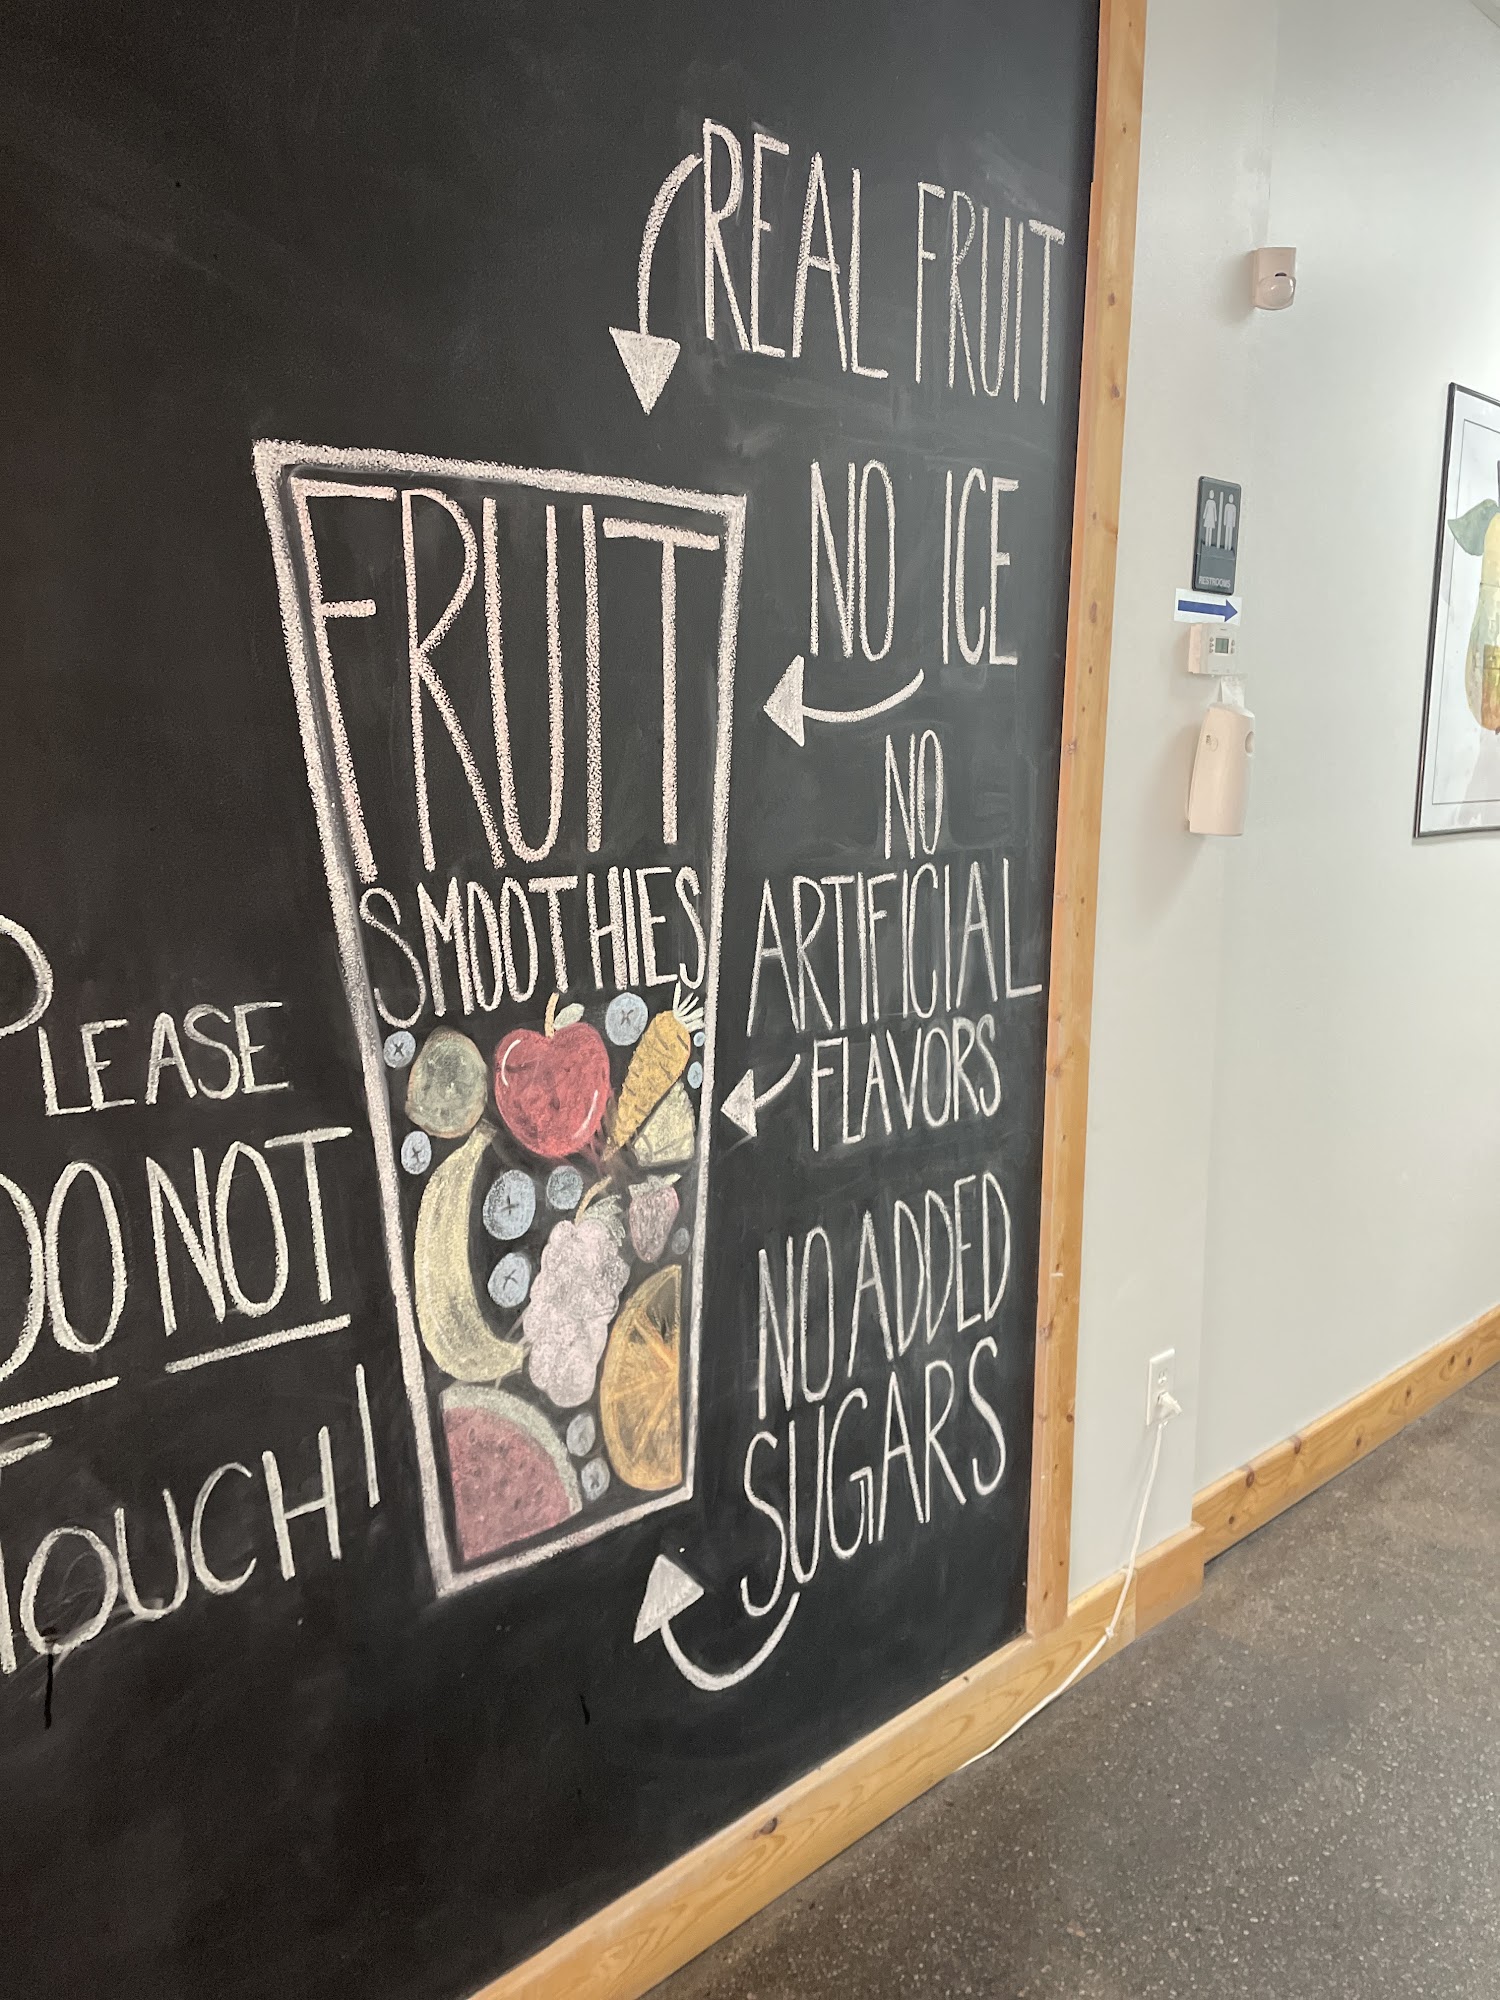 REAL FRUIT
NO ICE
NO
ARTIFICIAL
FLAVORS
NO ADDED
SUGARS
FRUIT
SMOOTHIES
PLEASE
DO NOT
TOUCH!
RESTROOMS